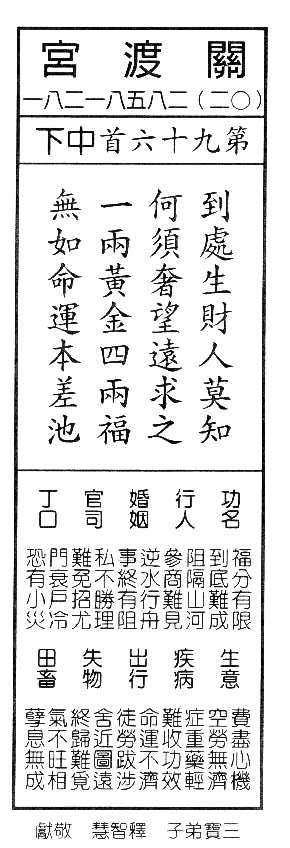 關渡宮
（〇二）二八五八一二八一
第九十六首中下
到處生財人莫知
何須奢望遠求之
一兩黃金四兩福
無如命運本差池
功名
福分有限
到底難成
行人
阻隔山河
參商難見
婚姻
逆水行舟
事終有阻
官司
私不勝理
難免招尤
丁口
門衰戶冷
恐有小災
生意
費盡心機
空勞無濟
疾病
症重藥輕
難收功效
出行
命運不濟
徒勞跋涉
失物
舍近圖遠
終歸難覓
田畜
氣不旺相
孽息無成
三寶弟子 釋智慧 敬獻